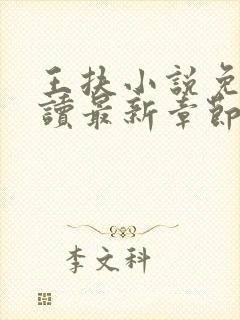 王扶小說免
讀最新章節
李文科